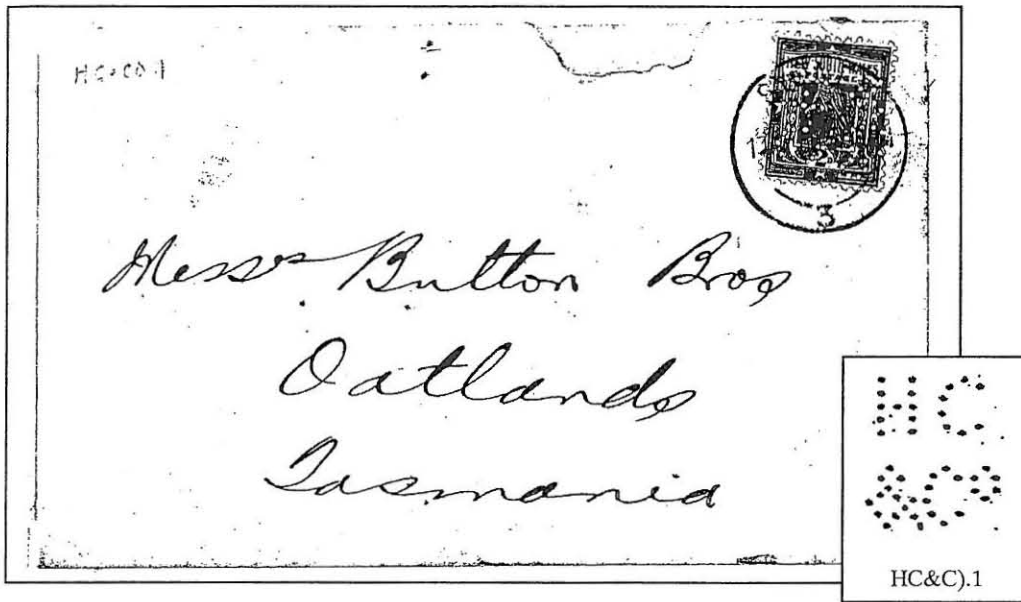 HC&CO.1
3
Messrs Button Bros
Oatlands
Tasmania
HC
&Co
HC&C).1